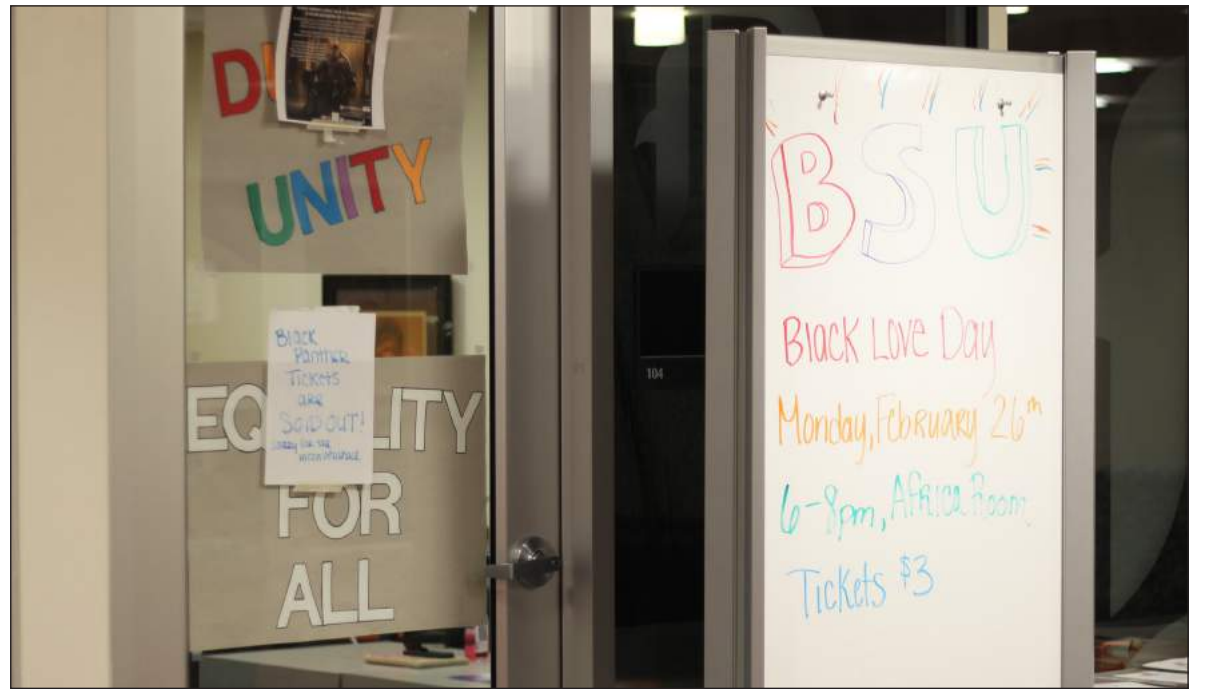 D
UNITY
Black
Panther
Tickets
are
SOLD OUT!
sorry for the
inconvenience
EQ LITY
FOR
ALL
104
BSU
Black Love Day
Monday, February 26th
6-8pm, Africa Room
Tickets $3